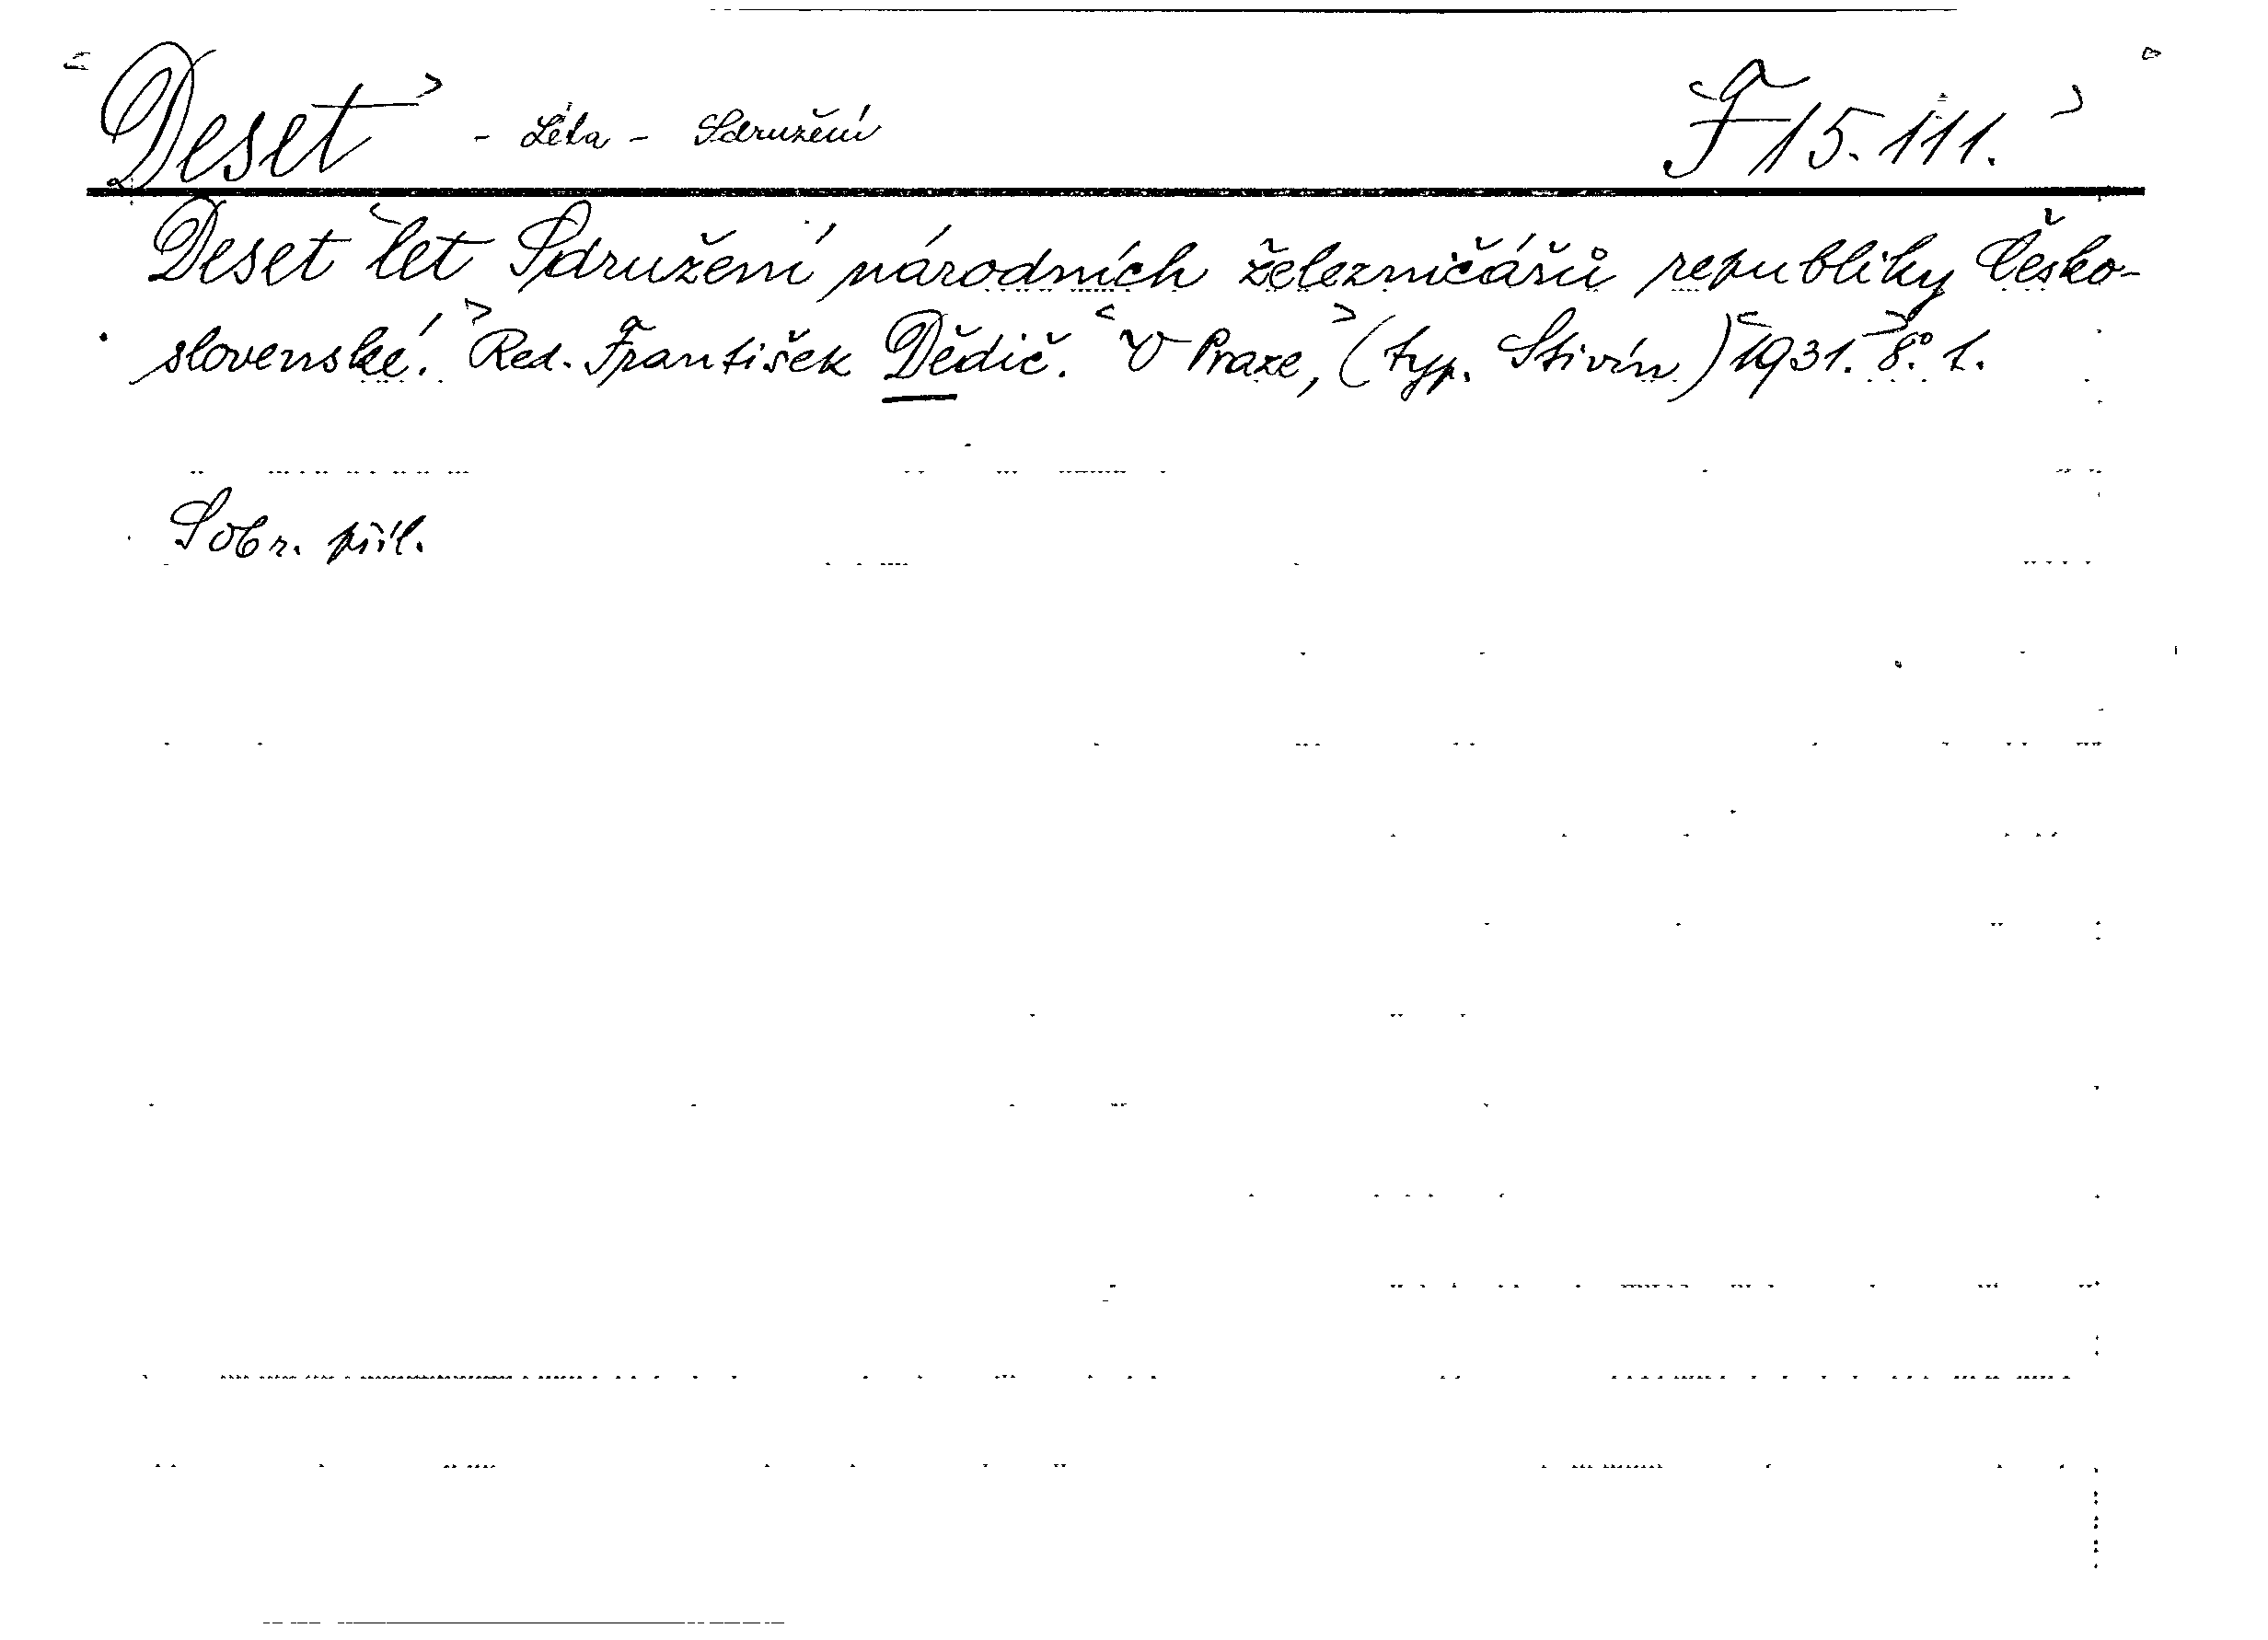 Deset - Léta - Sdružení F 15.111.
Deset let Sdružení národních železničářů republiky Česko-
slovenské. Red. František Dědič. V Praze, (typ. Stivín) 1931. 8° 1.
S obr. příl.